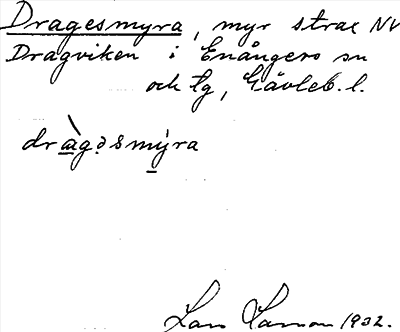 Dragesmyra, myr strax NV
Dragviken i Enångers sn
och tg, Gävleb. l.
dràgəsmýra
Lars 1932.